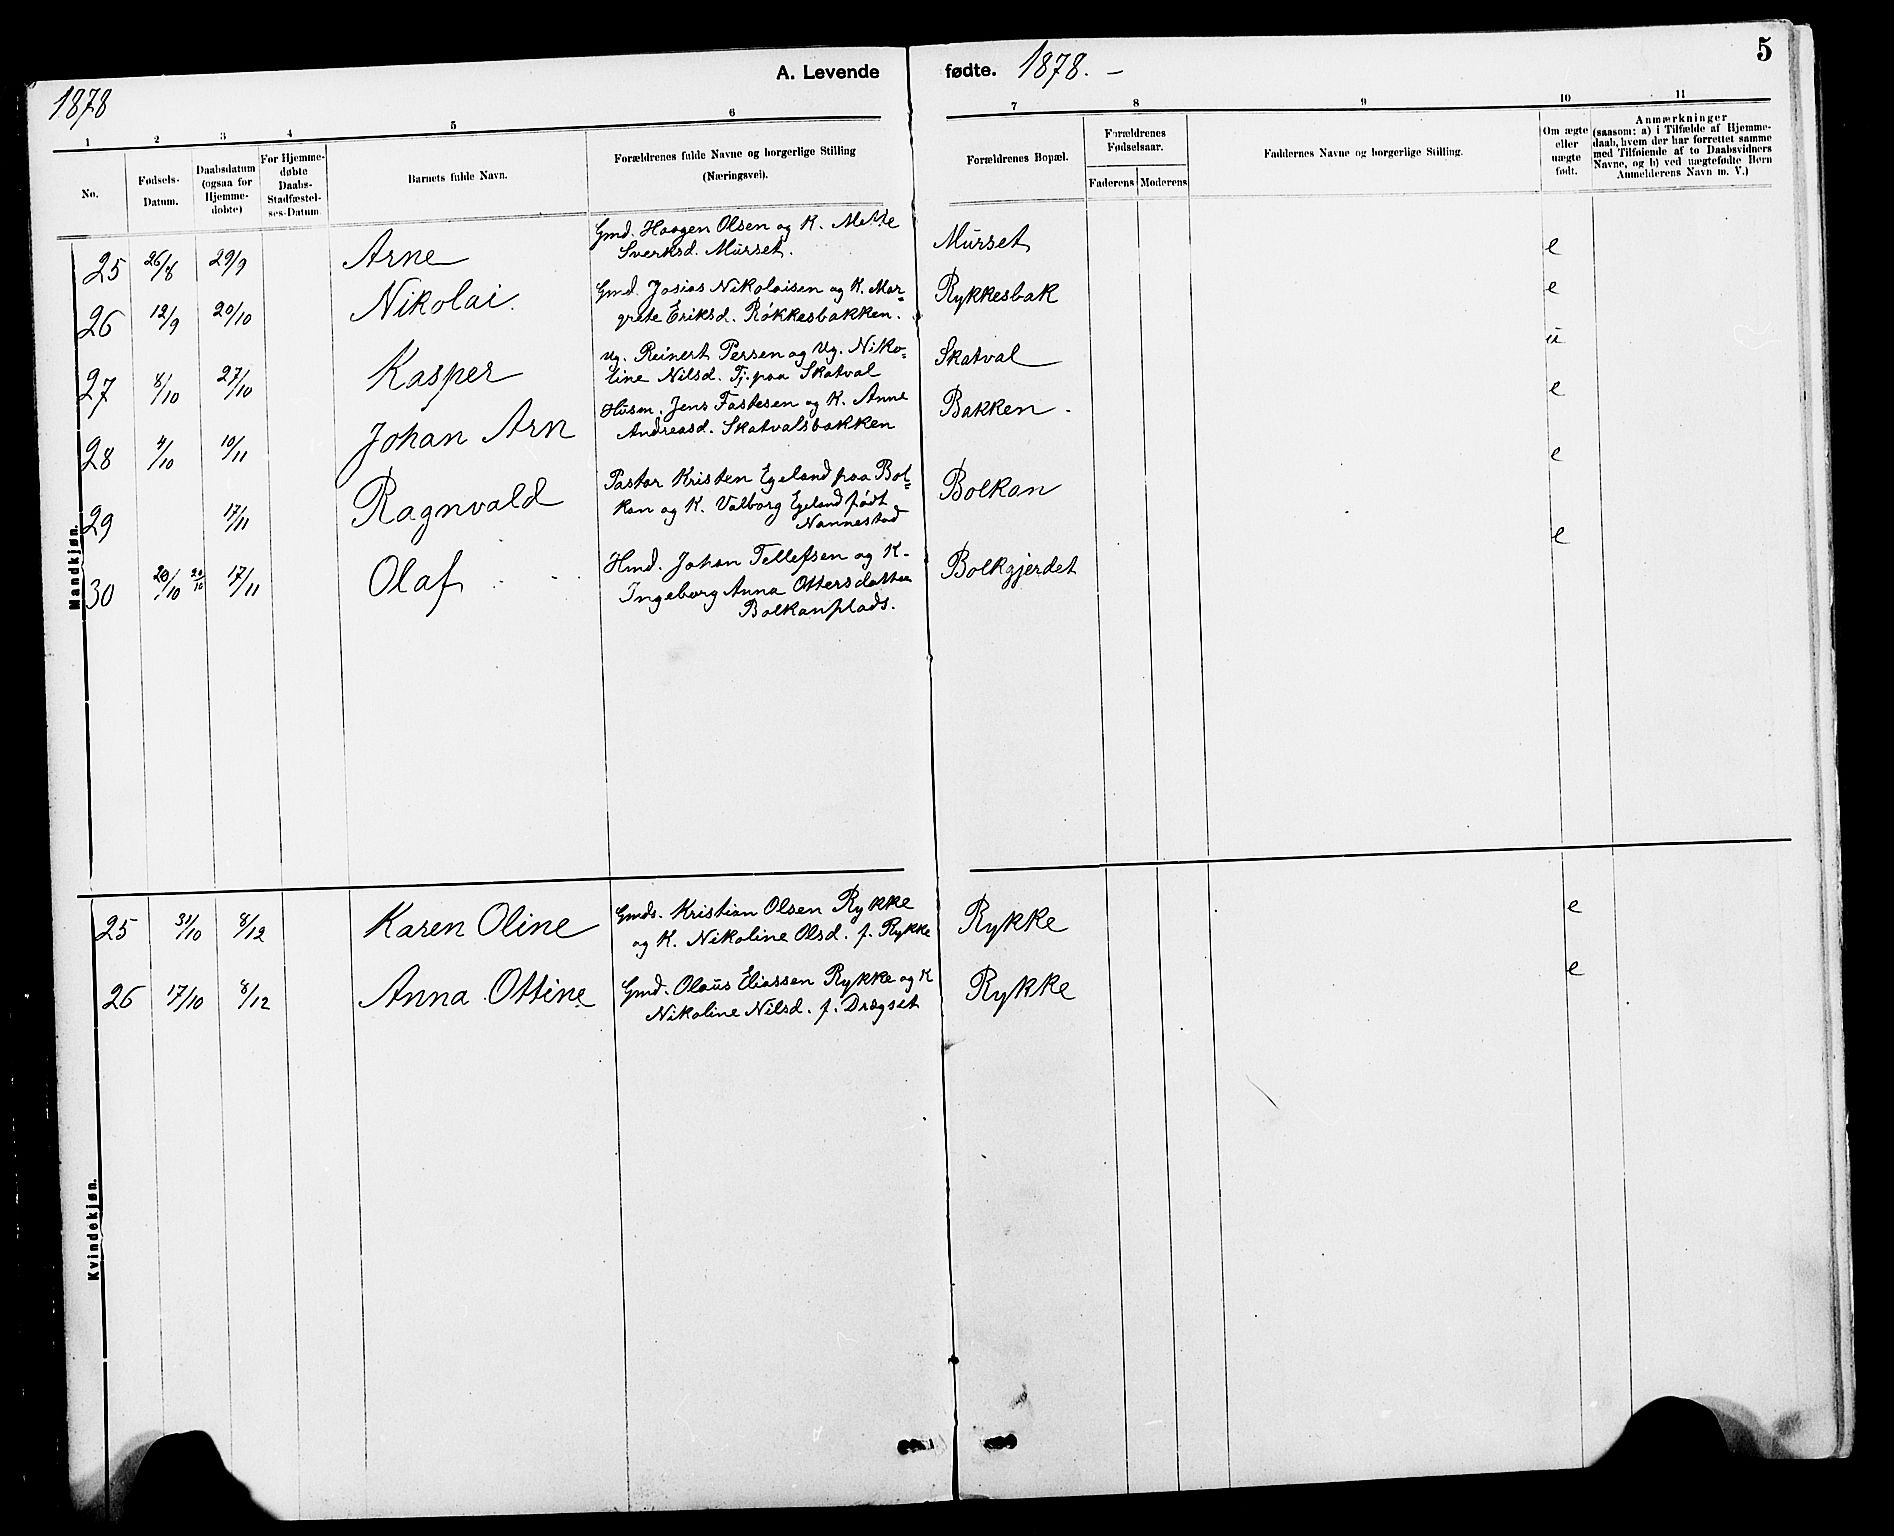 A. Levende fødte. 1878. – 5
1878
1 2 3 4 5 6 7 8 9 10 11
No.
Fødsels-
Datum.
Daabsdatum
(ogsaa for
Hjemme-
døbte)
For Hjemme-
døbte
Daabs-
Stadfæstel-
ses-Datum
Barnets fulde Navn.
Forældrenes fulde Navne og borgerlige Stilling
(Næringsvei).
Forældrenes Bopæl.
Forældrenes
Fødselsaar.
Faderens Moderens
Faddernes Navne og borgerlige Stilling.
Om ægte
eller
uægte
født.
Anmærkninger
(saasom: a) i Tilfælde af Hjemme-
daab, hvem der har forrettet samme
med Tilføiende af to Daabsvidners
Navne, og b) ved uægtefødte Børn
Anmelderens Navn m. V.)
Mandkjøn.
25 26/8 29/9 Arne Gmd. Haagen Olsen og K. Mette Murset e
Sverksd. Murset.
26 12/9 20/10 Nikolai. Gmd. Josias Nikolaisen og K. Mar- Rykkesbak e
grete Eriksd. Røkkesbakken.
27 8/10 27/10 Kasper Ug. Reinert Persen og Ug. Niko- Skatval u
line Nilsd. Tj. paa Skatval
28 4/10 10/11 Johan Arn Husm. Jens Fastesen og K. Anne Bakken. e
Andreasd. Skatvalsbakken
29 17/11 Ragnvald Pastor Kristen Egeland paa Bol- Bolkan e
kan og K. Valborg Egeland født
Nannestad
30 20/10 20/10 17/11 Olaf Hmd. Johan Tellefsen og K. Bolkgjerdet e
Ingeborg Anna Ottersdatter
Bolkanplads.
Kvindekjøn.
25 31/10 8/12 Karen Oline Gmds. Kristian Olsen Rykke Rykke e
og K. Nikoline Olsd. f. Rykke
26 17/10 8/12 Anna Ottine Gmd. Olaus Eliassen Rykke og K Rykke e
Nikoline Nilsd. f. Drægset